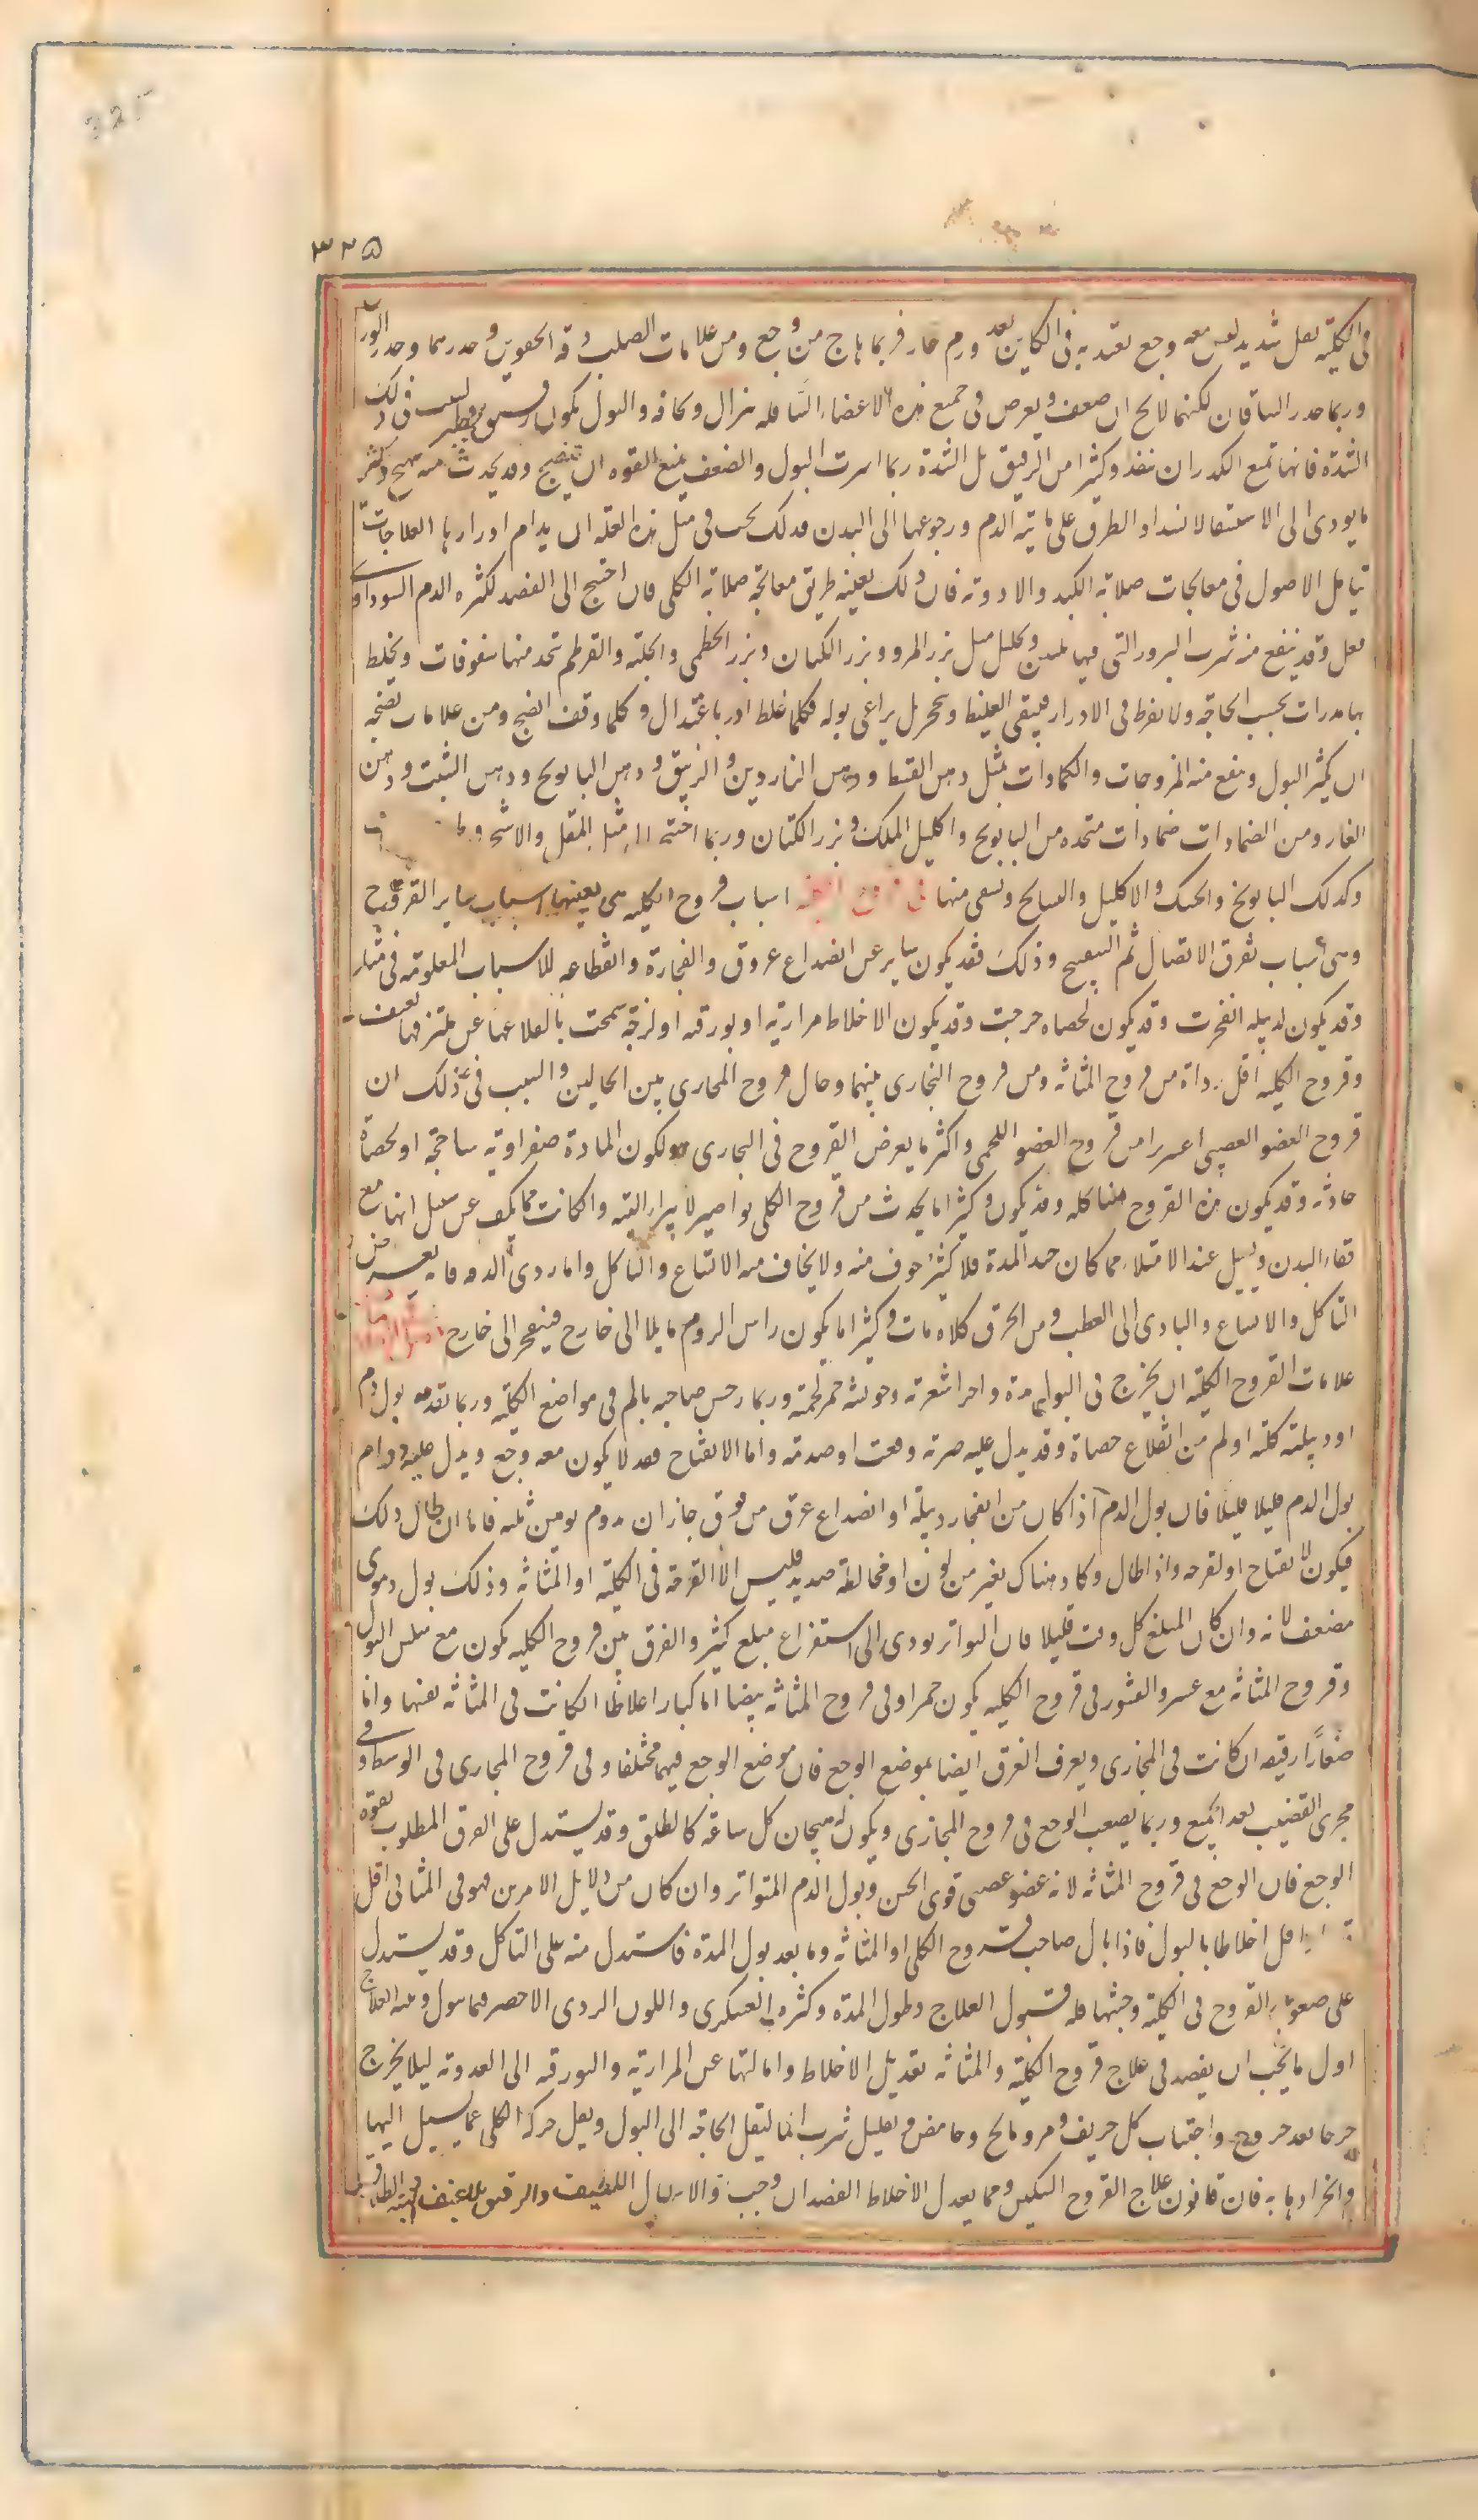 325
٣٢٥
فى الكلية ثقل شديد ليس معه وجع يعتد به فى الكائن بعد ورم حار فربما هاج من وجع ومن علامات الصلب دقة الحقوين وخدرهما وخدر الورك
وربما خدر الساقان لكنهما لا يخ ان ضعف ويعرض فى جميع هذه الاعضاء السافله هزال وكافه والبول يكون
الشدة فانها تمنع الكدر ان ينفذ وكثيرا من الرقيق بل الشدة ربما اسرت البول والضعف يمنع القوه ان ينضج وقد يحدث منه تهيج وكثير
ما يودى الى الاستسقا لانسداد الطرق على مائية الدم ورجوعها الى البدن فذلك يجب فى مثل هذه العله ان يدام ادرارها العلاجات
تتامل الاصول فى معالجات صلابة الكبد والا دونه فان ذلك بعينه طريق معالجة صلابة الكلى فان احتيج الى الفصد لكثره الدم السوداوى
فعل وقد ينفع منه شرب البزور التى فيها تليين وتحليل مثل بزر المرو وبزر الكتان وبزر الخطمى والحلبه والقرطم تتخذ منها سفوفات ويخلط
بها مدرات بحسب الحاجه ولا يفرط فى الادرار فيبقى الغليظ ويتحجر بل يراعى بوله فكلما غلظ ادر باعتدال وكلما وقف انضج ومن علامات نضجه
ان يكثر البول وينفع منه المروخات والكمادات بمثل دهن القسط ودهن الناردين والزنبق ودهن البابونج ودهن الشبت ودهن
الغار ومن الضمادات ضمادات متخذه من البابونج واكليل الملك وبزر الكتان وربما احتيج الى مثل المقل والاشج
وكذلك البابونج والحسك والاكليل والسبايج ويسقى منها فى قروح الكلية اسباب قروح الكليه هى بعينها اسباب ساير القروح
وهى اسباب تفرق الاتصال ثم التقيح وذلك فقد يكون ساير عن انصداع عروق وانفجارة وانقطاعه للاسباب المعلومه فى مثله
وقد يكون لدبيله انفجرت وقد يكون لحصاه خرجت وقد يكون الاخلاط مراريه او بورقيه او لزجة سحجت بانقلاعها عن ملتزقها بعنف
وقروح الكليه اقل رداة من قروح المثانه ومن قروح المجارى بينهما وحال قروح المجارى بين الحالين والسبب فى ذلك ان
قروح العضو العصبى اعسر برا من قروح العضو اللحمى واكثر ما يعرض القروح فى المجارى لكون المادة صفراويه ساحجة او لحصاة
حادثه وقد يكون هذه القروح متاكله وقد يكون وكثيرا ما يحدث من قروح الكلى نواصير لا تبرا البته وان كانت مما يكف عن سيل انها مع
نقاء البدن ويسيل عند الامتلاء فما كان جيد المدة فلا كثير خوف منه ولا يخاف منه الاتساع والتاكل واما ردى المده فانه يعرض من
التاكل والاتساع والتادى الى العطب ومن انخرق كلاه مات وكثيرا ما يكون راس الورم مايلا الى خارج فينفجر الى خارج
علامات القروح الكلية ان يخرج فى البول مدة واجزا شعريه وجوشه حمر لحميه وربما حس صاحبه بالم فى مواضع الكلية وربما تقدمه بول دم
او دبيلة كلية او الم من انقلاع حصاة وقد يدل عليه ضربه وقعت او صدمه واما الانفتاح فقد لا يكون معه وجع ويدل عليه دوام
بول الدم قليلا قليلا فان بول الدم اذا كان من انفجار دبيلة او انصداع عرق من فوق جاز ان يدوم يومين ثلثه فاما ان طال ذلك
فيكون لا نفتاح او لقرحه واذا طال وكان هناك تغير من لون او مخالطة صديد فليس الا القرحه فى الكلية او المثانه وذلك بول دموى
مضعف لانه وان كان المبلغ كل وقت قليلا فان التواتر يودى الى استفراغ مبلغ كثير والفرق بين قروح الكليه يكون مع سلس البول
وقروح المثانه مع عسر والقشور فى قروح الكليه يكون حمر او فى قروح المثانه بيضا اما كبارا غلاظا ان كانت فى المثانه نفسها واما
صغارا رقيقه ان كانت فى المجارى ويعرف الفرق ايضا بموضع الوجع فان موضع الوجع فيهما مختلفا وفى قروح المجارى فى الوسط وفى
مجرى القضيب بعد الجميع وربما يصعب الوجع فى قروح المجارى ويكون له هيجان كل ساعة كالطلق وقد يستدل على الفرق المطلوب بقوة
الوجع فان الوجع فى قروح المثانه لانه عضو عصبى قوى الحس وبول الدم المتواتر وان كان من دلايل الامرين فهو فى المثانى اقل
اقل اختلاطا بالبول فاذا بال صاحب قروح الكلى او المثانه دما بعد بول المدة فاستدل منه على التاكل وقد يستدل
على صعوبة القروح فى الكلية وخبثها قله قبول العلاج وطول المدة وكثرة العكرى واللون الردى الاخضر فيما يبول العلاج
اول ما يجب ان يقصد فى علاج قروح الكلية والمثانه تعديل الاخلاط وامالتها عن المراريه والبورقيه الى العذوبه ليلا يخرج
جرحا بعد جروح واجتناب كل حريف ومر ومالح وحامض وتقليل شرب الما ليقل الحاجه الى البول ويقل حركة الكلى عما يسيل اليها
وانجرادها به فان قانون علاج القروح التسكين ومما يعدل الاخلاط الفصد ان وجب والاسهال اللطيف والرقيق بلا عنف